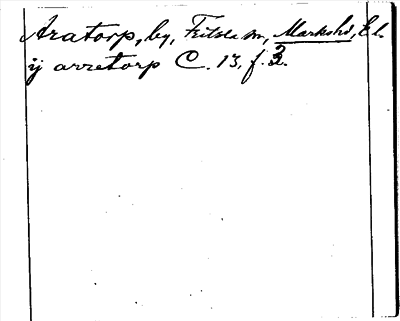 Aratorp, by, Fritsla sn, Markshd, El.
ij arretorp C. 13, f. 2.